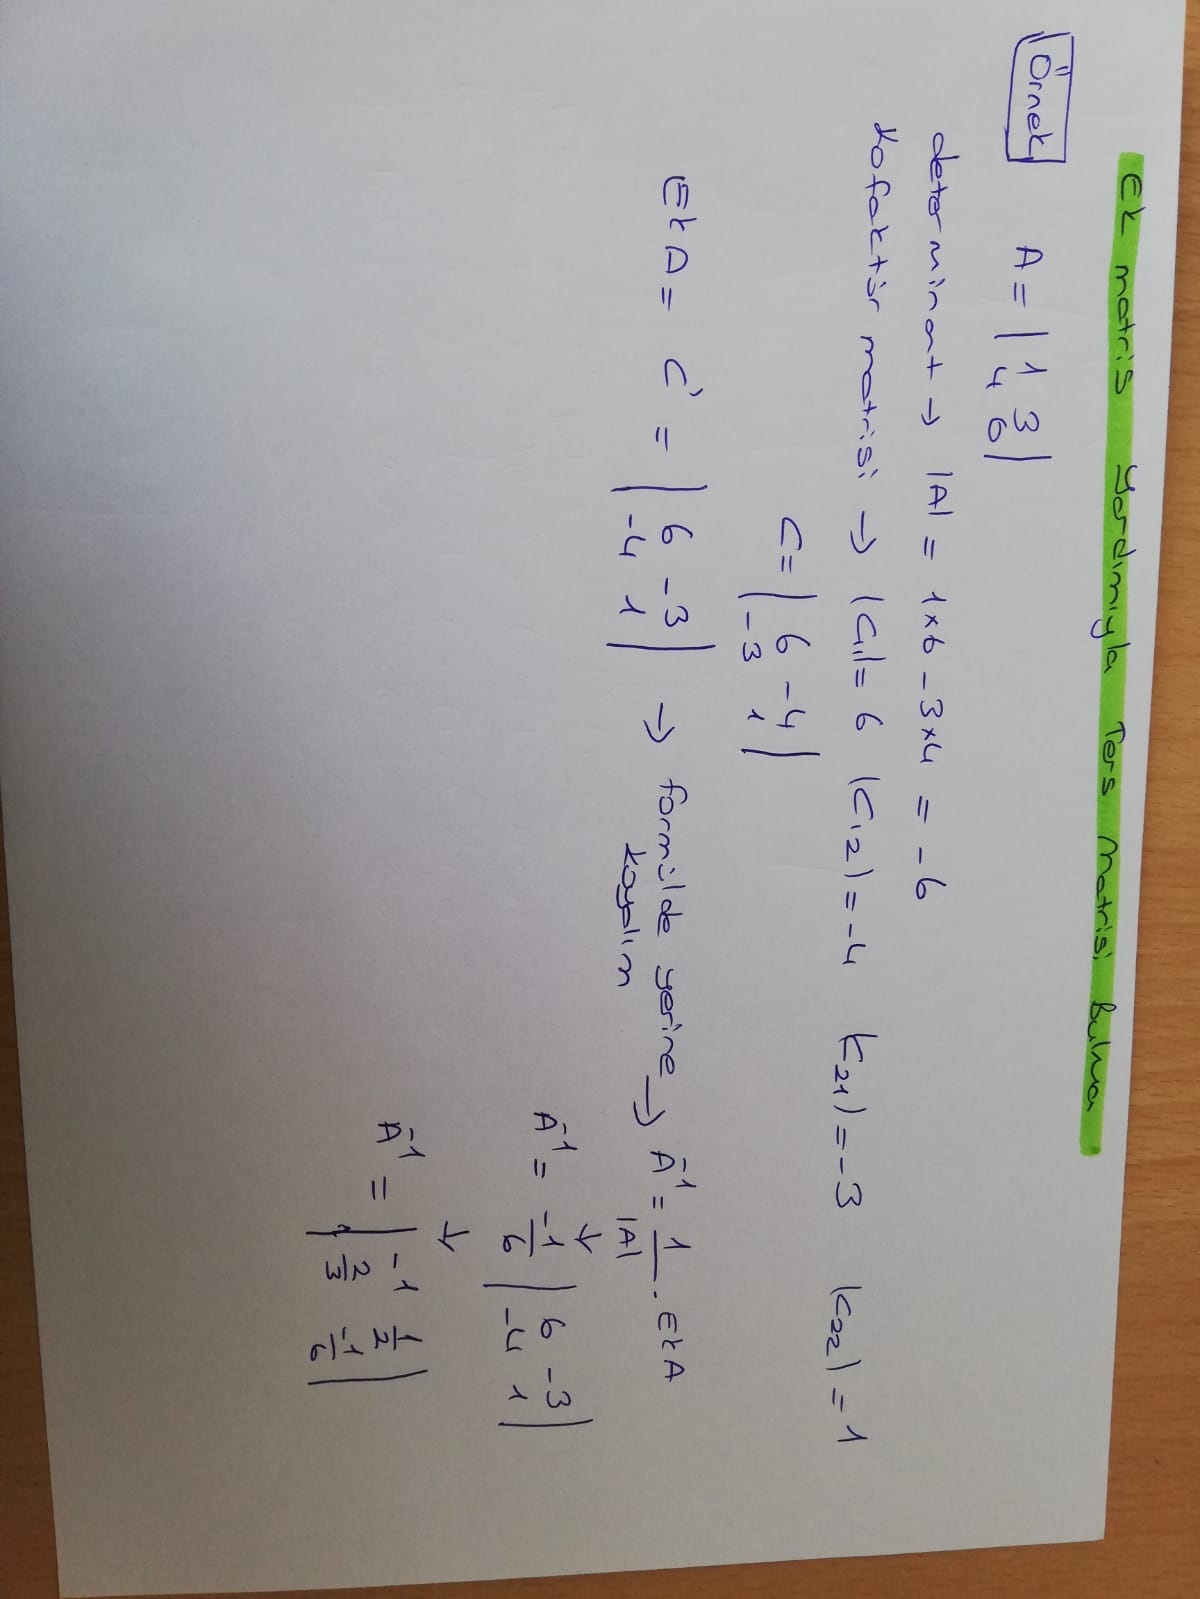 Ek matris Yardımıyla Ters Matrisi Bulma
Örnek A = | 1 3 |
| 4 6 |
determinant → |A| = 1x6 - 3x4 = -6
kofaktör matrisi → |C11| = 6 |C12) = -4 C21) = -3 |C22) = 1
C = | 6 -4 |
| -3 1 |
Ek A = C' = | 6 -3 | → formülde yerine → A⁻¹ = 1/|A| . Ek A
| -4 1 | koyalım
↓
A⁻¹ = -1/6 | 6 -3 |
| -4 1 |
↓
A⁻¹ = | -1 1/2 |
| 2/3 -1/6 |